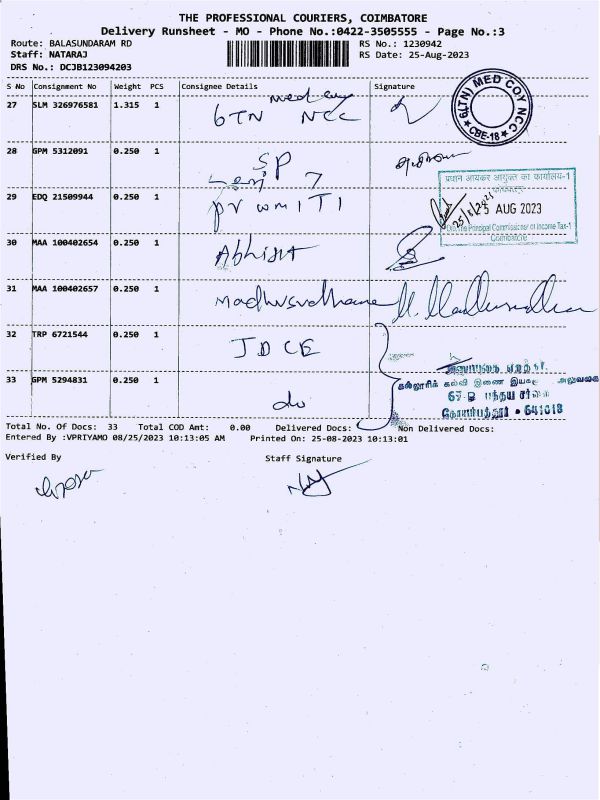 THE PROFESSIONAL COURIERS, COIMBATORE
Delivery Runsheet - MO - Phone No.:0422-3505555 - Page No.:3
Route: BALASUNDARAM RD RS No.: 1230942
Staff: NATARAJ RS Date: 25-Aug-2023
DRS No.: DCJB123094203
S No Consignment No Weight PCS Consignee Details Signature
27 SLM 326976581 1.315 1 6TN NCC
6(TN) MED COY NCC
★ CBE-18 ★
28 GPM 5312091 0.250 1 SP
7
29 EDQ 21509944 0.250 1 ITI
प्रधान आयकर आयुक्त का कार्यालय-1
25 AUG 2023
O/o. The Principal Commissioner of Income Tax-1
Coimbatore
30 MAA 100402654 0.250 1
31 MAA 100402657 0.250 1 Madhusudhana
32 TRP 6721544 0.250 1 JDCE
33 GPM 5294831 0.250 1 do
கல்லூரிக் கல்வி இணை இயக்
கோயம்புத்தூர் • 641018
Total No. Of Docs: 33 Total COD Amt: 0.00 Delivered Docs: Non Delivered Docs:
Entered By :VPRIYAMO 08/25/2023 10:13:05 AM Printed On: 25-08-2023 10:13:01
Verified By Staff Signature